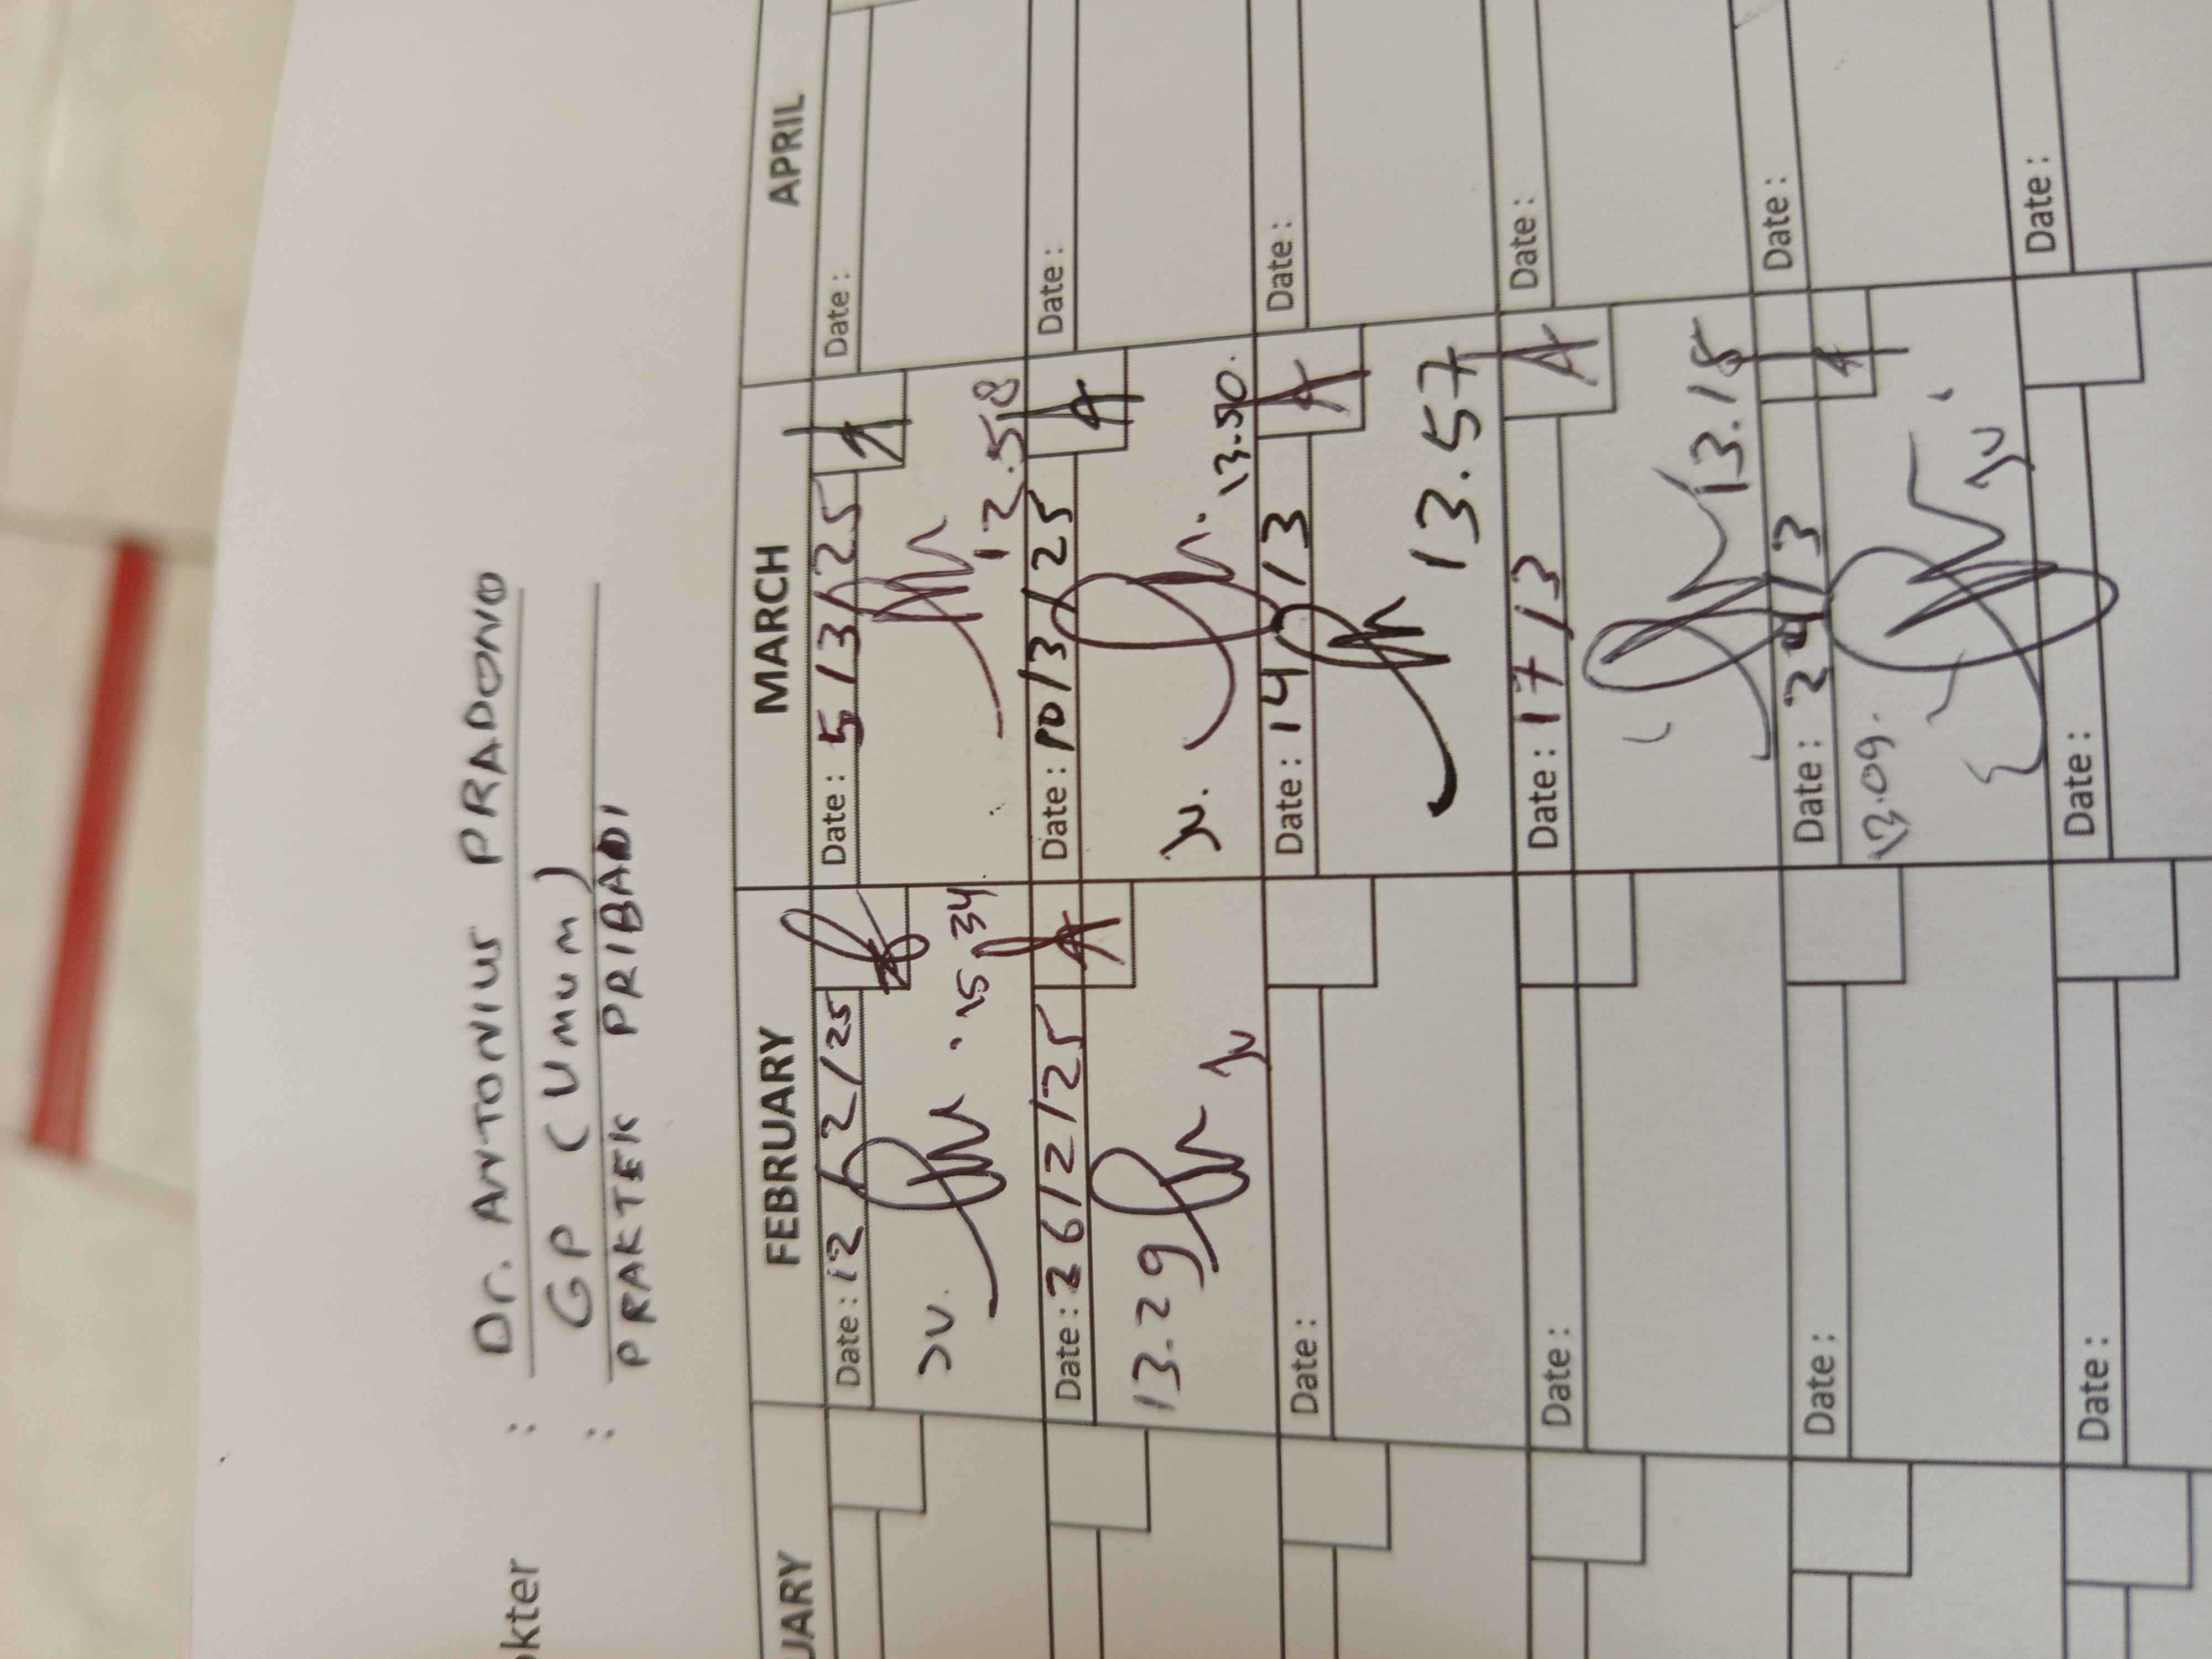 : Dr. ANTONIUS PRADONO
GP (UMUM)
okter : PRAKTEK PRIBADI
UARY FEBRUARY MARCH APRIL
Date : 12 / 2 / 25 Date : 5 / 3 / 25 Date :
15 34 12.58
Date : 26 / 2 / 25 Date : 10 / 3 / 25 Date :
13.29 13.50.
Date : Date : 14 / 3 Date :
13.57
Date : Date : 17 / 3 Date :
13.15
Date : Date : 24 / 3 Date :
13.09.
Date : Date : Date :